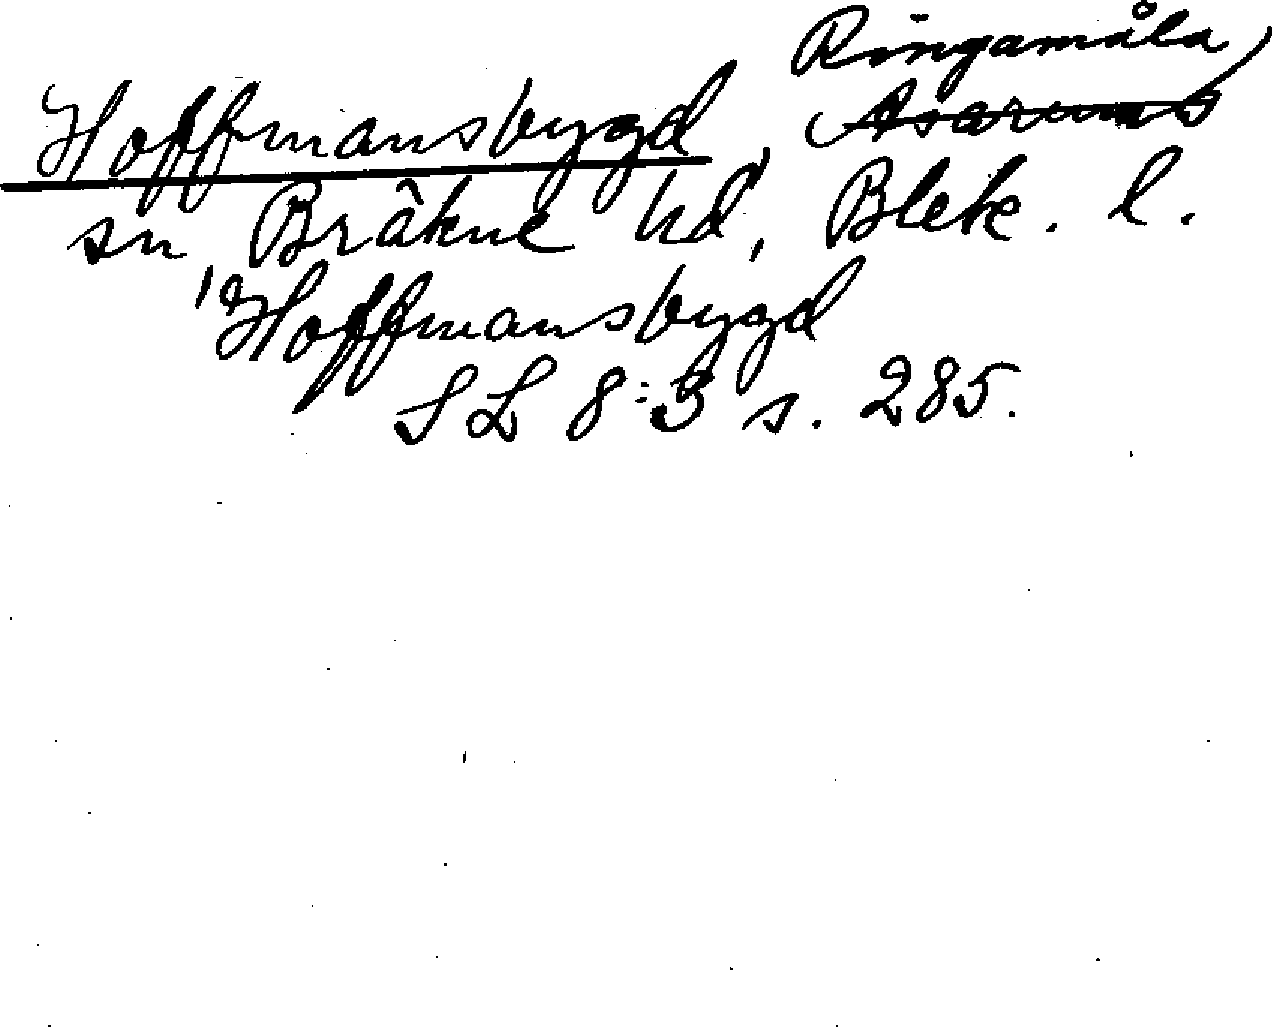 Ringamåla
Hoffmansbygd, Asarums
sn Bräkne hd, Blek. l.
Hoffmansbygd
SL 8:3 s. 285.